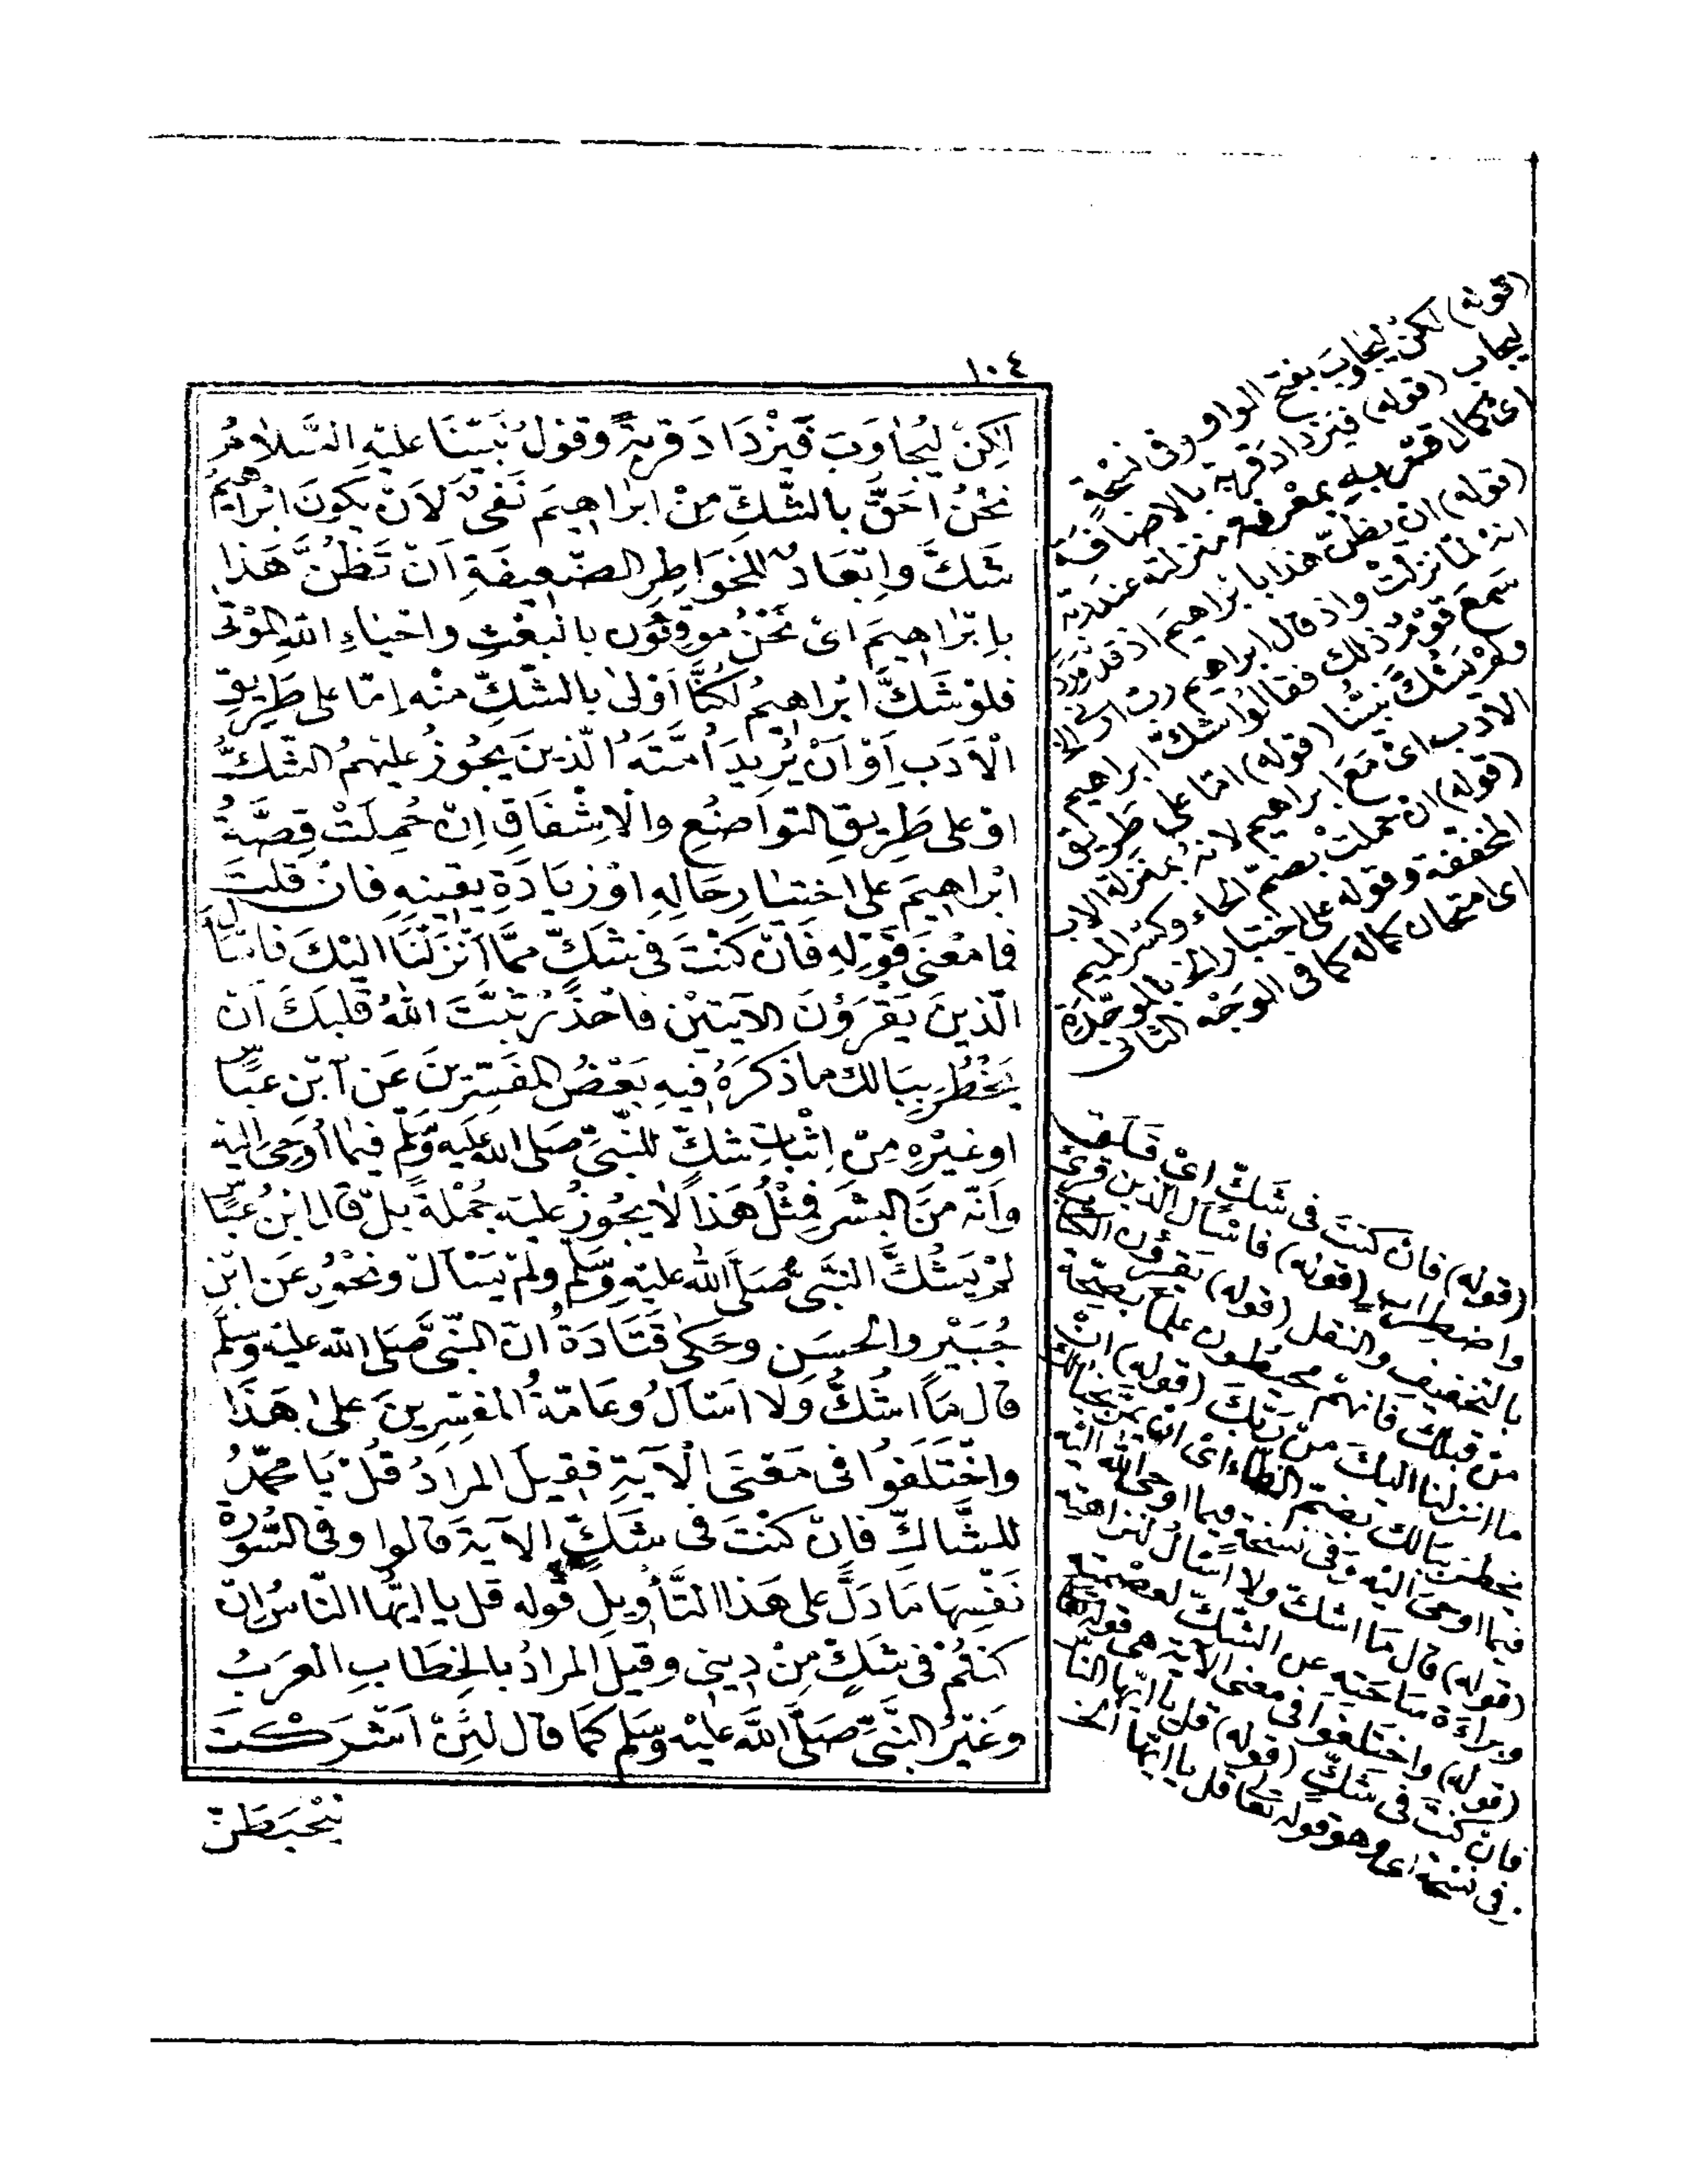 ١٠٤
لكِنْ لِيُجَاوَبَ فَيَزْدَادَ قُرْبَةً وقَوْلُ نَبِيِّنَا عليْهِ السَّلَامُ
نَحْنُ اَحَقُّ بِالشَّكِّ مِنْ ابرَاهِيمَ نَفْىٌ لاَنْ يَكونَ ابْرَاهِيمُ
شَكَّ وَاِبْعَادٌ للْخَوَاطِرِ الضَّعِيفَةِ اَنْ تَظُنَّ هَذا
بِاِبْرَاهِيمَ اىْ نَحْنُ مُوقِنُونَ بالْبَعْثِ واحْيَاءِ اللهِ المَوْتَى
فلوْ شَكَّ ابْرَاهِيمُ لَكُنَّا اَوْلى بالشَّكِّ مِنْهِ اِمّا عَلى طَرِيقِ
الْاَدَبِ اَوْ اَنْ يُرِيدَ اُمَّتَهُ الّذِينَ يَجُوزُ عليْهِمُ الشَّكُّ
اوْ عَلى طَرِيقِ التَّوَاضُعِ والْاِشْفَاقِ اِنْ حُمِلَتْ قِصَّةُ
ابْرَاهِيمَ عَلى اخْتِبَارِ حَالِهِ اوْ زِيَادَةِ يَقِينِهِ فَانْ قُلْتَ
فمَا مَعْنَى قَوْلِهِ فَاِنْ كُنْتَ فى شَكٍّ مِمَّا اَنْزَلْنَا اِلَيْكَ فَاسْأَلِ
الّذِينَ يَقْرَؤُنَ الآيَتَيْنِ فَاحْذَرْ ثَبَّتَ اللهُ قَلْبَكَ اَنْ
يَخْطُرَ بِبَالِكَ مَا ذَكَرَهُ فِيهِ بَعْضُ المُفَسِّرِينَ عَنِ ابْنِ عَبّاسٍ
اوْ غَيْرِهِ مِنْ اِثْبَاتِ شَكٍّ للنَّبِىِّ صَلى اللهُ عَلَيْهِ وَسَلَّمَ فِيمَا اُوحِىَ اِلَيْهِ
وَاَنّه مِنَ البَشَرِ فَمِثْلُ هَذَا لَا يَجُوزُ عَلَيْهِ جُمْلَةً بَلْ قَالَ ابْنُ عَبّاسٍ
لَمْ يَشُكَّ النَّبِىُّ صَلَّى اللهُ عَلَيْهِ وَسَلَّمَ وَلَمْ يَسْأَلْ وَنَحْوُهُ عَنِ ابْنِ
جُبَيْرٍ وَالْحَسَنِ وَحَكىٰ قَتَادَةُ انَّ النَّبِىَّ صَلَى اللهُ عَلَيْهِ وَسَلَّمَ
قَالَ مَا اَشُكُّ وَلَا اَسْأَلُ وَعَامَّةُ المُفَسِّرِينَ عَلىٰ هَذَا
وَاخْتَلَفُوا فى مَعْنَى الْآيَةِ فَقِيلَ المُرَادُ قُلْ يَا مُحَمَّدُ
لِلشَّاكِّ فَاِنْ كُنْتَ فى شَكٍّ الآيَةَ قَالوا وَفى السُّورَةِ
نَفْسِهَا مَا دَلَّ عَلى هَذَا التَّأْوِيلِ قَوْلُه قُلْ يَا اَيُّهَا النَّاسُ اِنْ
كُنْتُمْ فى شَكٍّ مِنْ دِينِى وَقِيلَ المُرَادُ بِالْخِطَابِ الْعَرَبُ
وَغَيْرُ النَّبِىِّ صَلَّى اللهُ عَلَيْهِ وَسَلَّمَ كَمَا قَالَ لَئِنْ اَشْرَكْتَ
لَيَحْبَطَنَّ
(قوله) لكنْ لِيُجَاوَبَ بفتح الواو وفى نسْخَةٍ
ليجاب (قوله) فيَزْدَادَ قُرْبَةً بالاضافَة
اى كمال قُرْبِهِ بمَعْرِفة منزلته عند ربّه
(قوله) انْ يظنّ هَذا باِبْرَاهِيمَ اذ قد وَرَدَ
انهُ لمّا نزلَتْ واذ قال ابراهيم ربّ ارنى الخ
سَمِعَ قَوْمٌ ذلك فقالوا شكّ ابراهيم
ولمْ يَشُكَّ نبيُّنا (قوله) امّا على طَريق
الادب اىْ مَعَ ابراهيم لانهُ بمَنْزِلة الاب
(قوله) ان حُملتْ بضمّ الحاء وكسْر الميم
المخففة وقوله على اختبار الخ بالموَحّدَة
اى امتحان كماله كما فى الوَجْه الثانى
(قوله) فانْ كنتَ فى شَكٍّ اىْ قَلَق
واضطِراب (قوله) فاسْأَلِ الّذين قرئ
بالتخفيف والنقل (قوله) يَقرؤن الكتابَ
منْ قبلك فانهُمْ محيطون علما بصِحّة
ما انزلنا اليكَ منْ رَبّكَ (قوله) انْ
يخطر ببَالك بضمّ الطاء اىْ ان يمرّ بخيالك
فيما اوحىَ اليْه وفى نسخة فيما اوحى الله اليْه
(قوله) قال مَا اشكّ ولا اسْأَلُ لنزاهته
وبراءَة سَاحَته عن الشكّ لعِصْمته
(قوله) واختَلفوا فى معْنى الآية هى قوله تعالى
فانْ كنتَ فى شَكٍّ (قوله) قل يا ايّها النّاسُ
فى نسْخة اى وهو قوله تعالى قل يا ايّها الخ